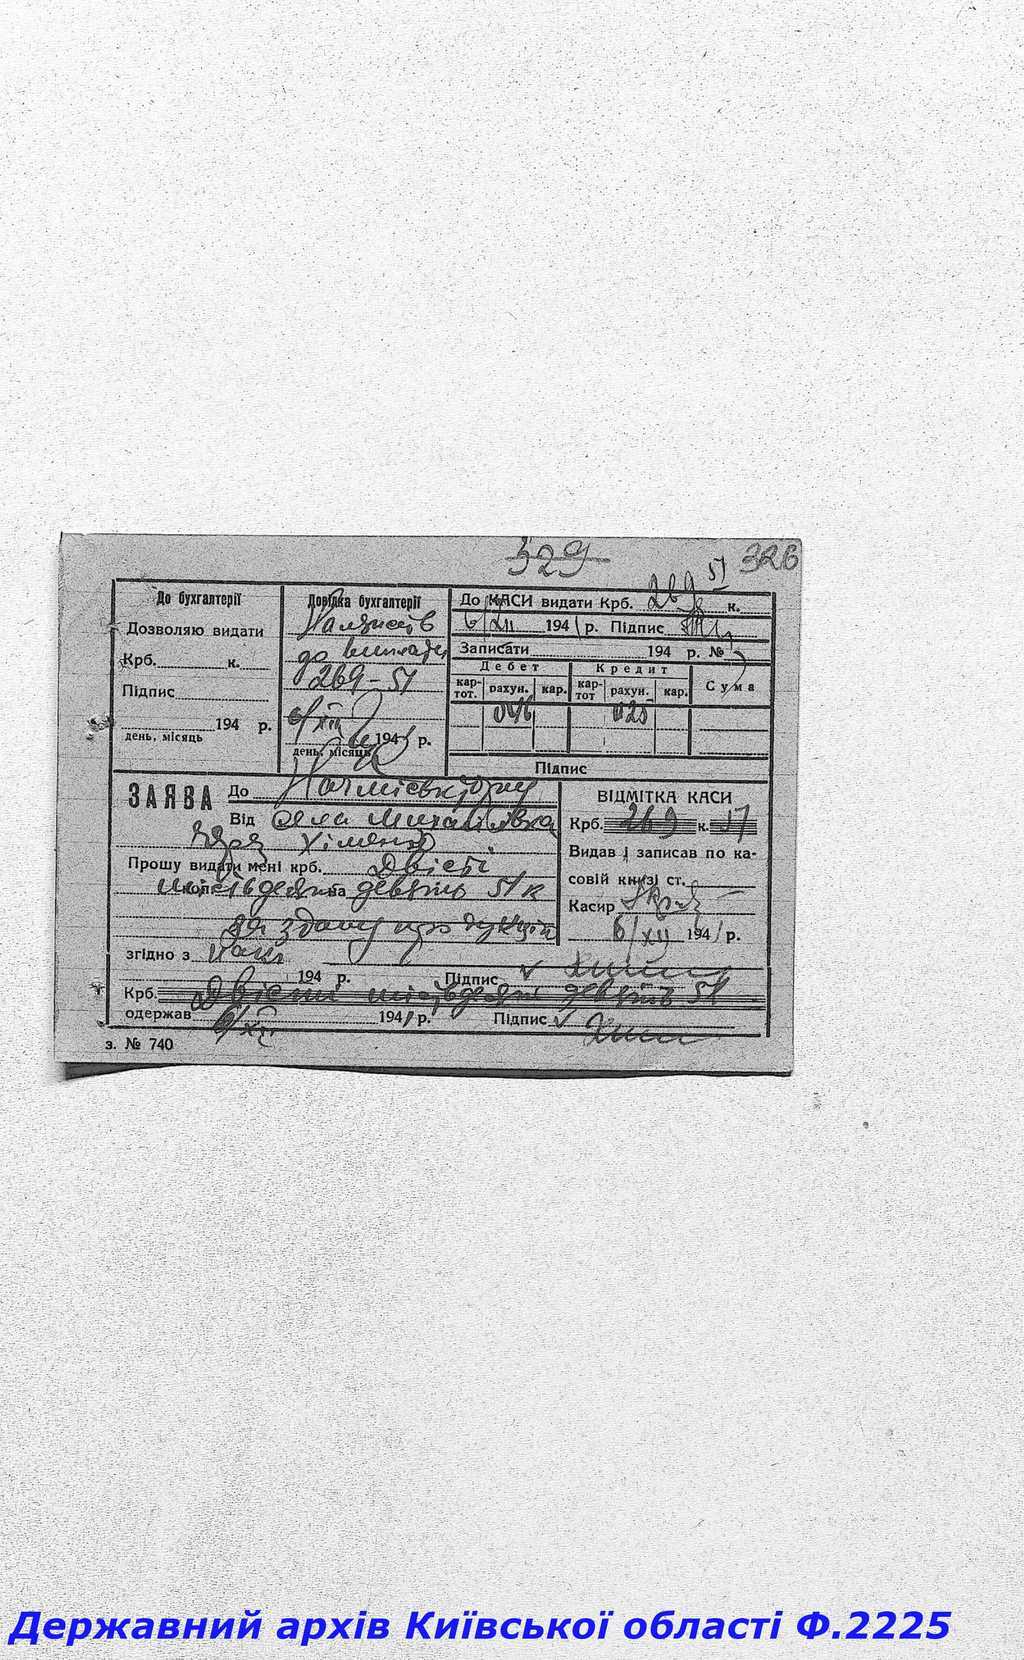 329
326
До бухгалтерії
Дозволяю видати
Крб. к.
Підпис
194 р.
день, місяць
Довідка бухгалтерії
до виплати
269-51
6/XII 1941 р.
день, місяць
До КАСИ видати Крб. 269 51 к.
6/XII 1941 р. Підпис
Записати 194 р. №
Дебет Кредит Сума
кар-тот. рахун. кар. кар-тот рахун. кар.
046 025
Підпис
ЗАЯВА До
Від села Михайлівка
Хіменко
Прошу видати мені крб. Двісті
шістьдесят девять 51 к
за здану продукцію
згідно з
194 р. Підпис
Крб. Двісті шістьдесят девять 51
одержав 6/XII 1941 р. Підпис
з. № 740
ВІДМІТКА КАСИ
Крб. 269 к. 51
Видав і записав по ка-
совій книзі ст.
Касир
6/XII 1941 р.
Державний архів Київської області Ф.2225